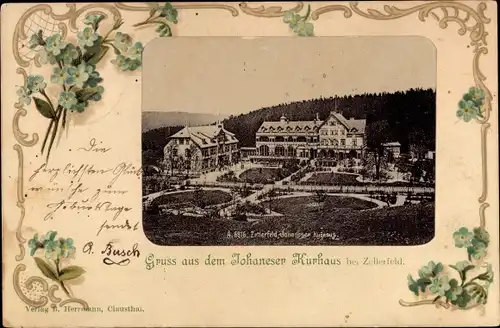 Die
herzlichsten Glück
wünsche zum
Geburtstage
sendet
A. Busch
A. 8816. Zellerfeld, Johanneser Kurhaus
Gruss aus dem Johaneser Kurhaus bei Zellerfeld.
Verlag H. Herrmann, Clausthal.